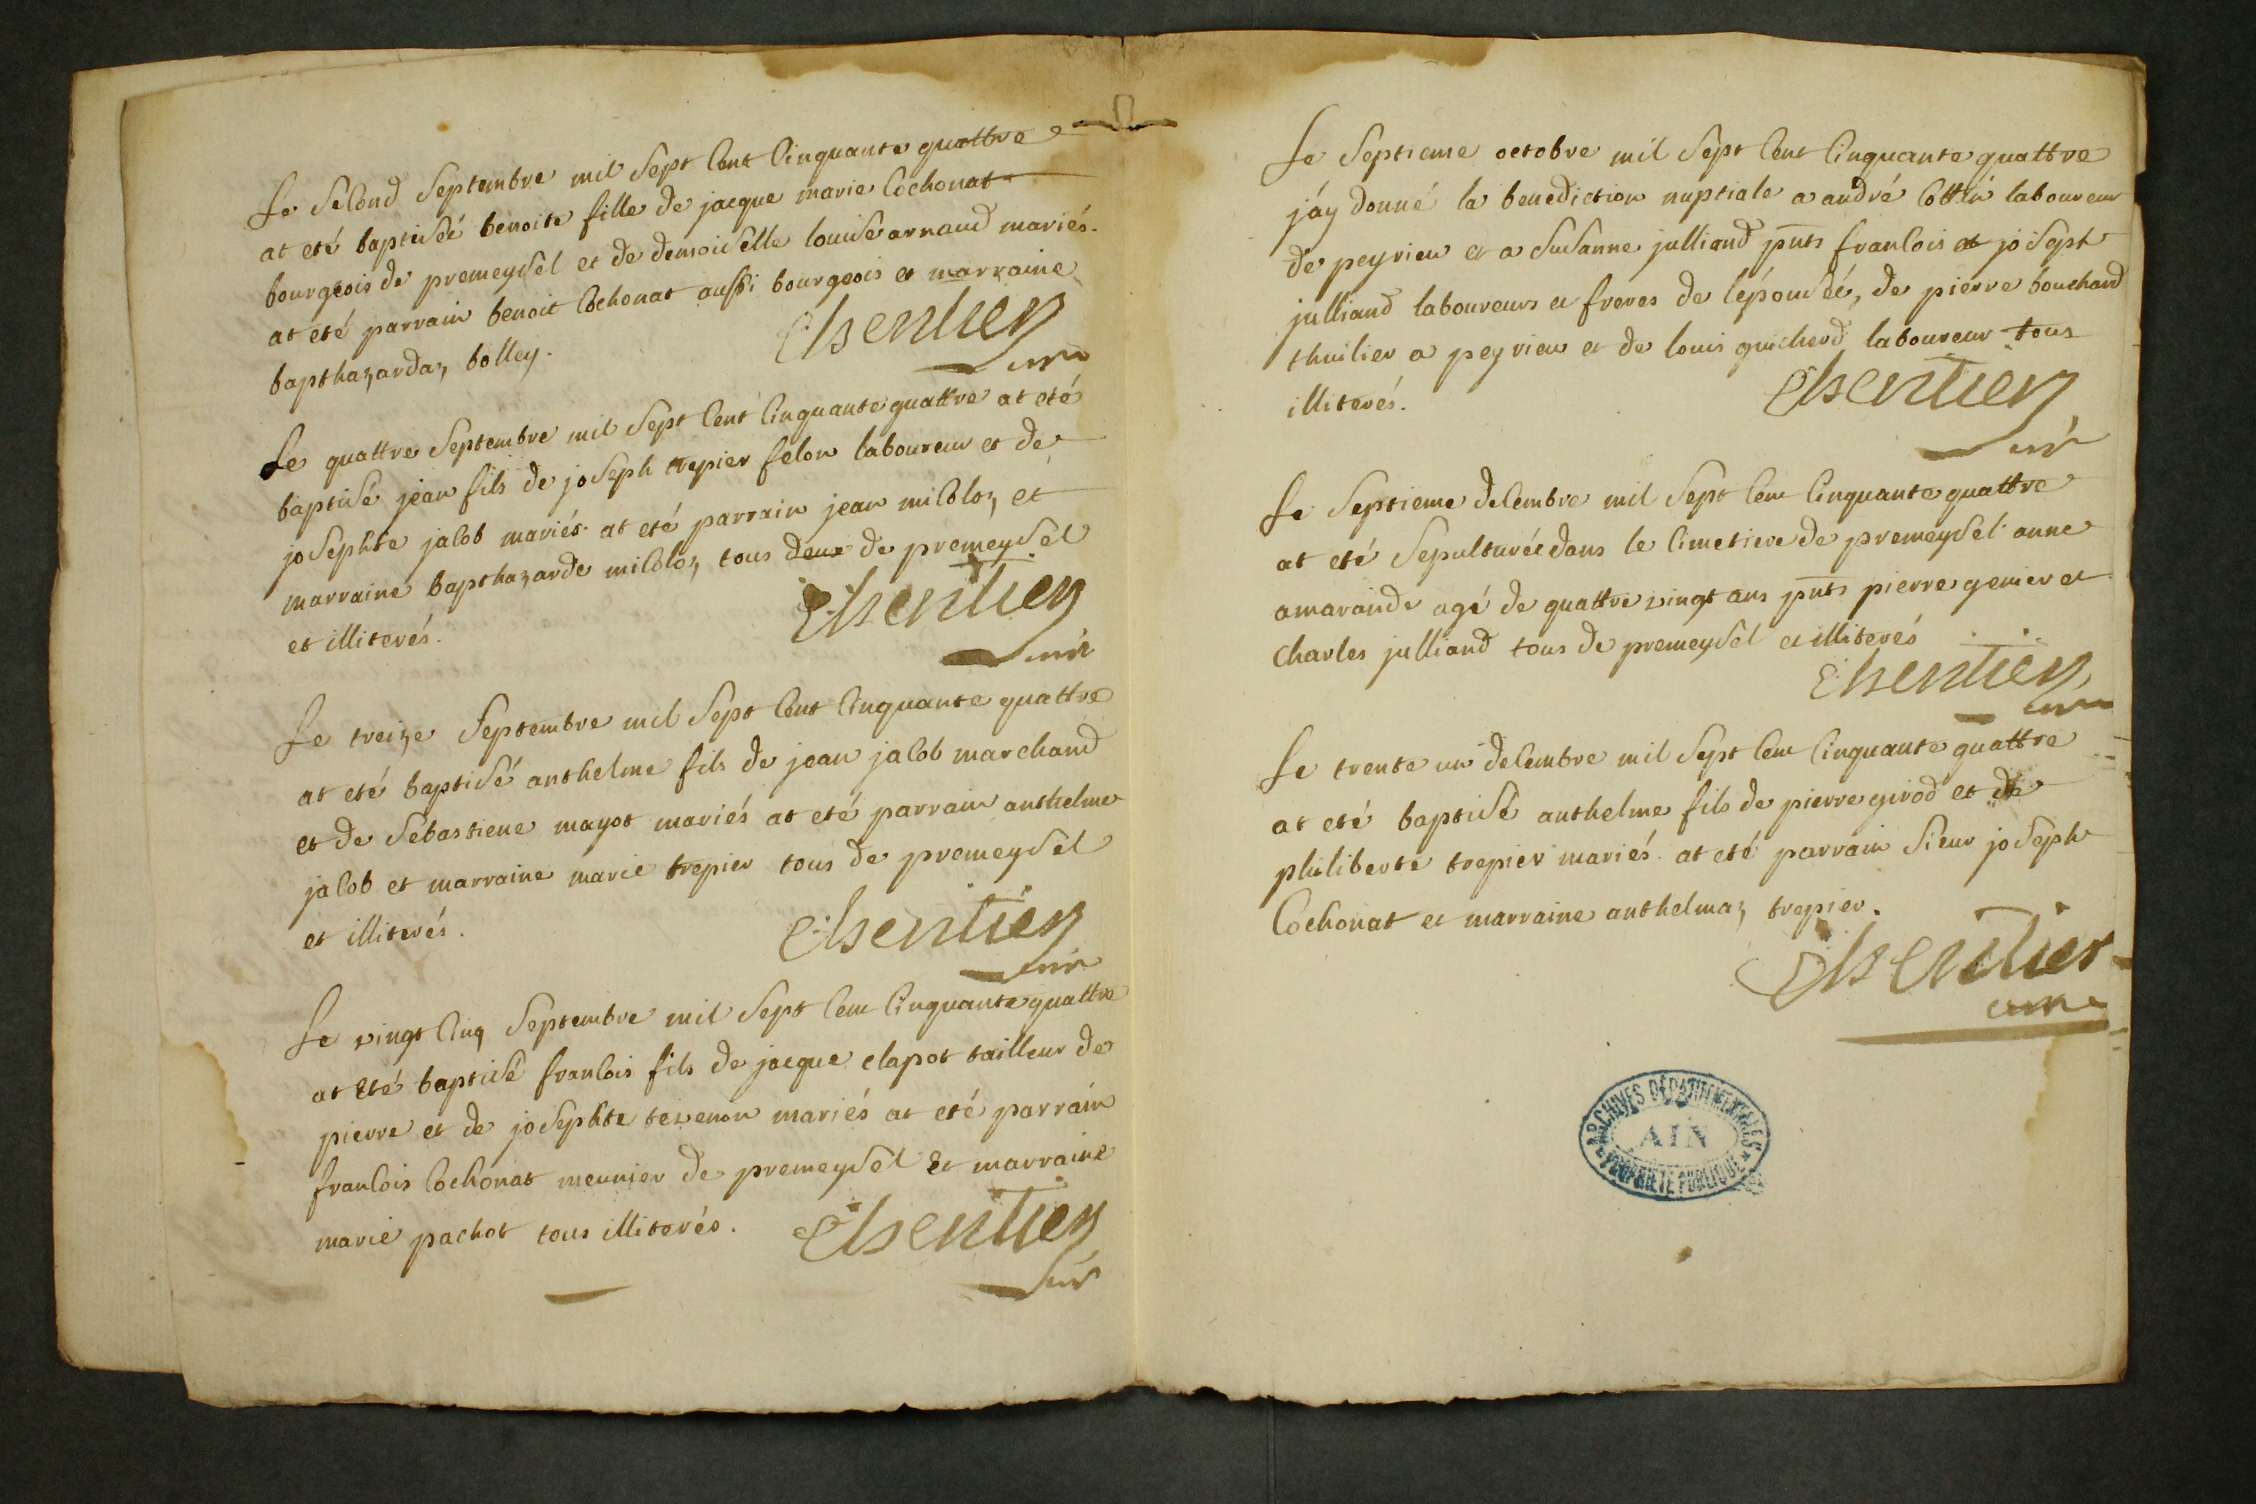 Le second septembre mil sept cent cinquante quattre
at eté baptisée benoite fille de jacque marie Cochonat
bourgeois de premeysel et de demoiselle louise arnaud mariés.
at eté parrain benoit Cochonat aussi bourgeois et marraine
bapthazardaz bolley.
curé
Le quattre septembre mil sept cent cinquante quattre at eté
baptisé jean fils de joseph trepier felon laboureur et de
josephte jacob mariés. at eté parrain jean micoloz et
marraine bapthazarde micoloz tous deux de premeysel
et illiterés.
curé
Le treize septembre mil sept cent cinquante quattre
at eté baptisé anthelme fils de jean jacob marchand
et de sebastiene mayot mariés at eté parrain anthelme
jacob et marraine marie trepier tous de premeysel
et illiterés.
curé
Le vingt cinq septembre mil sept cent cinquante quattre
at eté baptisé francois fils de jacque clapot tailleur de
pierre et de josephte tevenon mariés at eté parrain
francois Cochonat meunier de premeysel et marraine
marie pachot tous illiterés.
curé
Le septieme octobre mil sept cent cinquante quattre
j'áy donné la benediction nuptiale a andré Cottin laboureur
de peyrieu et a susanne julliand pnts francois et joseph
julliand laboureurs et freres de l'épousée, de pierre bouchard
thuilier a peyrieu et de louis guicherd laboureur tous
illiterés.
curé
Le septieme decembre mil sept cent cinquante quattre
at eté sepulturée dans le cimetiere de premeysel anne
amarande agé de quattre vingt ans pnts pierre genier et
charles julliand tous de premeysel et illiterés
curé
Le trente un decembre mil sept cent cinquante quattre
at eté baptisé anthelme fils de pierre girod et de
philiberte trepier mariés. at eté parrain sieur joseph
Cochonat et marraine anthelmaz trepier.
curé
ARCHIVES DÉPARTEMENTALES
AIN
PROPRIÉTÉ PUBLIQUE